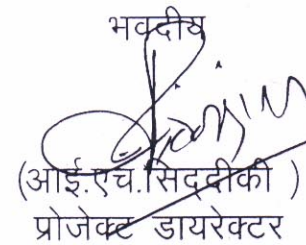 भवदीय
(आई.एच.सिद्दीकी )
प्रोजेक्ट डायरेक्टर